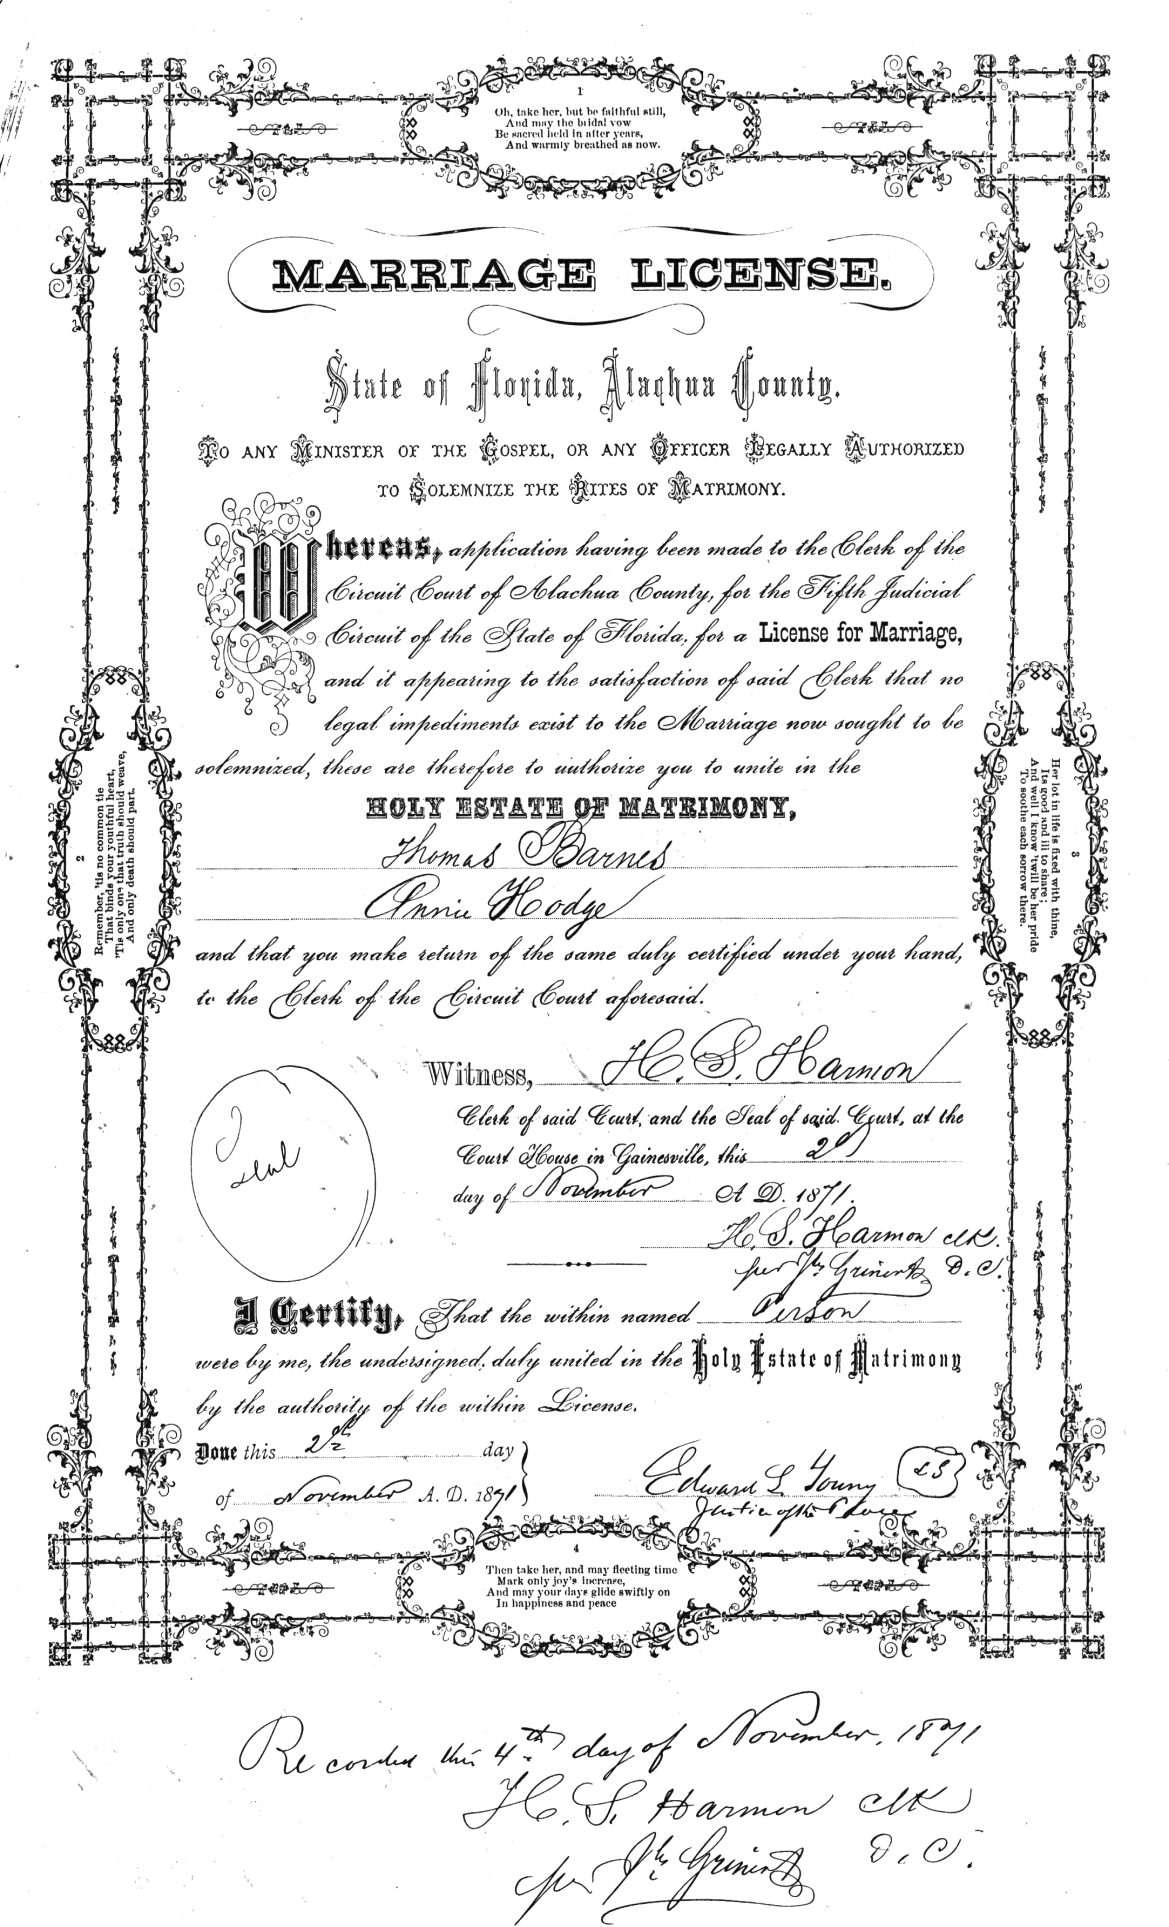 1
Oh, take her, but be faithful still,
And may the bridal vow
Be sacred held in after years,
And warmly breathed as now.
MARRIAGE LICENSE.
State of Florida, Alachua County.
To any Minister of the Gospel, or any Officer Legally Authorized
to Solemnize the Rites of Matrimony.
Whereas, application having been made to the Clerk of the
Circuit Court of Alachua County, for the Fifth Judicial
Circuit of the State of Florida, for a License for Marriage,
and it appearing to the satisfaction of said Clerk that no
legal impediments exist to the Marriage now sought to be
solemnized, these are therefore to authorize you to unite in the
HOLY ESTATE OF MATRIMONY,
Thomas Barnes
Annie Hodge
and that you make return of the same duly certified under your hand,
to the Clerk of the Circuit Court aforesaid.
2
Remember, 'tis no common tie
That binds your youthful heart,
'Tis only one that truth should weave,
And only death should part.
3
Her lot in life is fixed with thine,
Its good and ill to share;
And well I know 'twill be her pride
To soothe each sorrow there.
Witness, H. S. Harmon
Clerk of said Court, and the Seal of said Court, at the
Court House in Gainesville, this 2d
day of November A D. 1871.
seal
H. S. Harmon clk.
per D. C.
I Certify, That the within named Person
were by me, the undersigned, duly united in the Holy Estate of Matrimony
by the authority of the within License.
Done this 2 day
of November A. D. 1871
Edward L Young LS
Justice of the Peace
4
Then take her, and may fleeting time
Mark only joy's increase,
And may your days glide swiftly on
In happiness and peace
Recorded this 4th day of November, 1871
H. S. Harmon clk
per D. C.